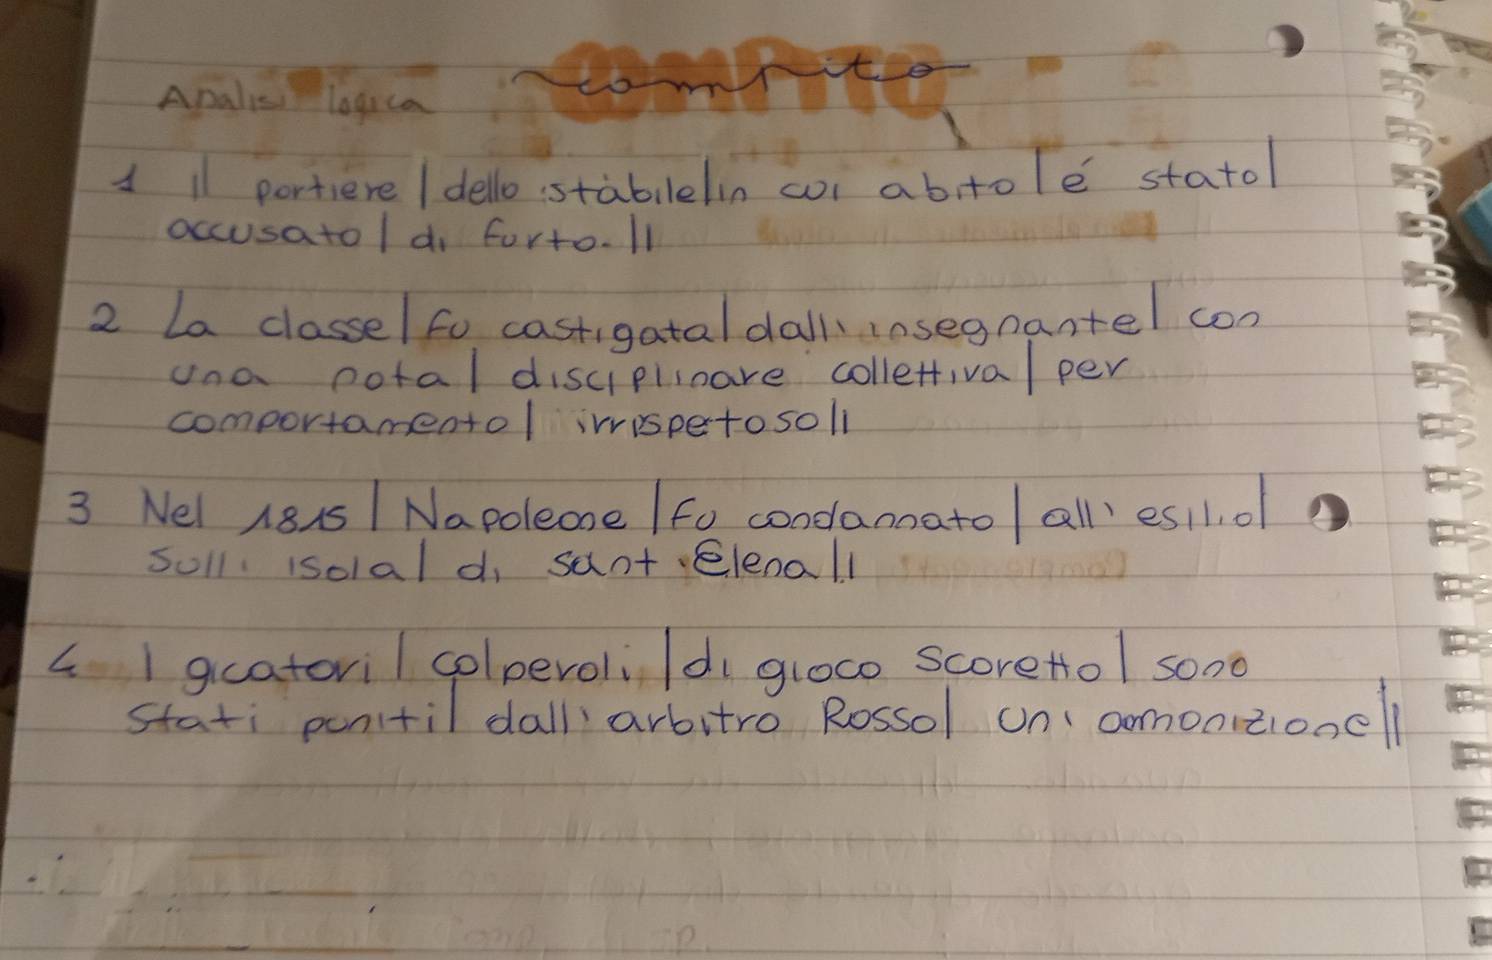 Analisi logica compito
1 Il portiere | dello stabile | in cui abito | é stato |
accusato | di furto. ||
2 La classe | fu castigata | dall' insegnante | con
una nota | disciplinare collettiva | per
comportamento | irrispetoso ||
3 Nel 1815 | Napoleone | fu condannato | all' esilio |
sull' isola | di sant Elena ||
4 I gicatori | colpevoli | di gioco scoretto | sono
stati puniti | dall' arbitro Rosso | un' ammonizione ||